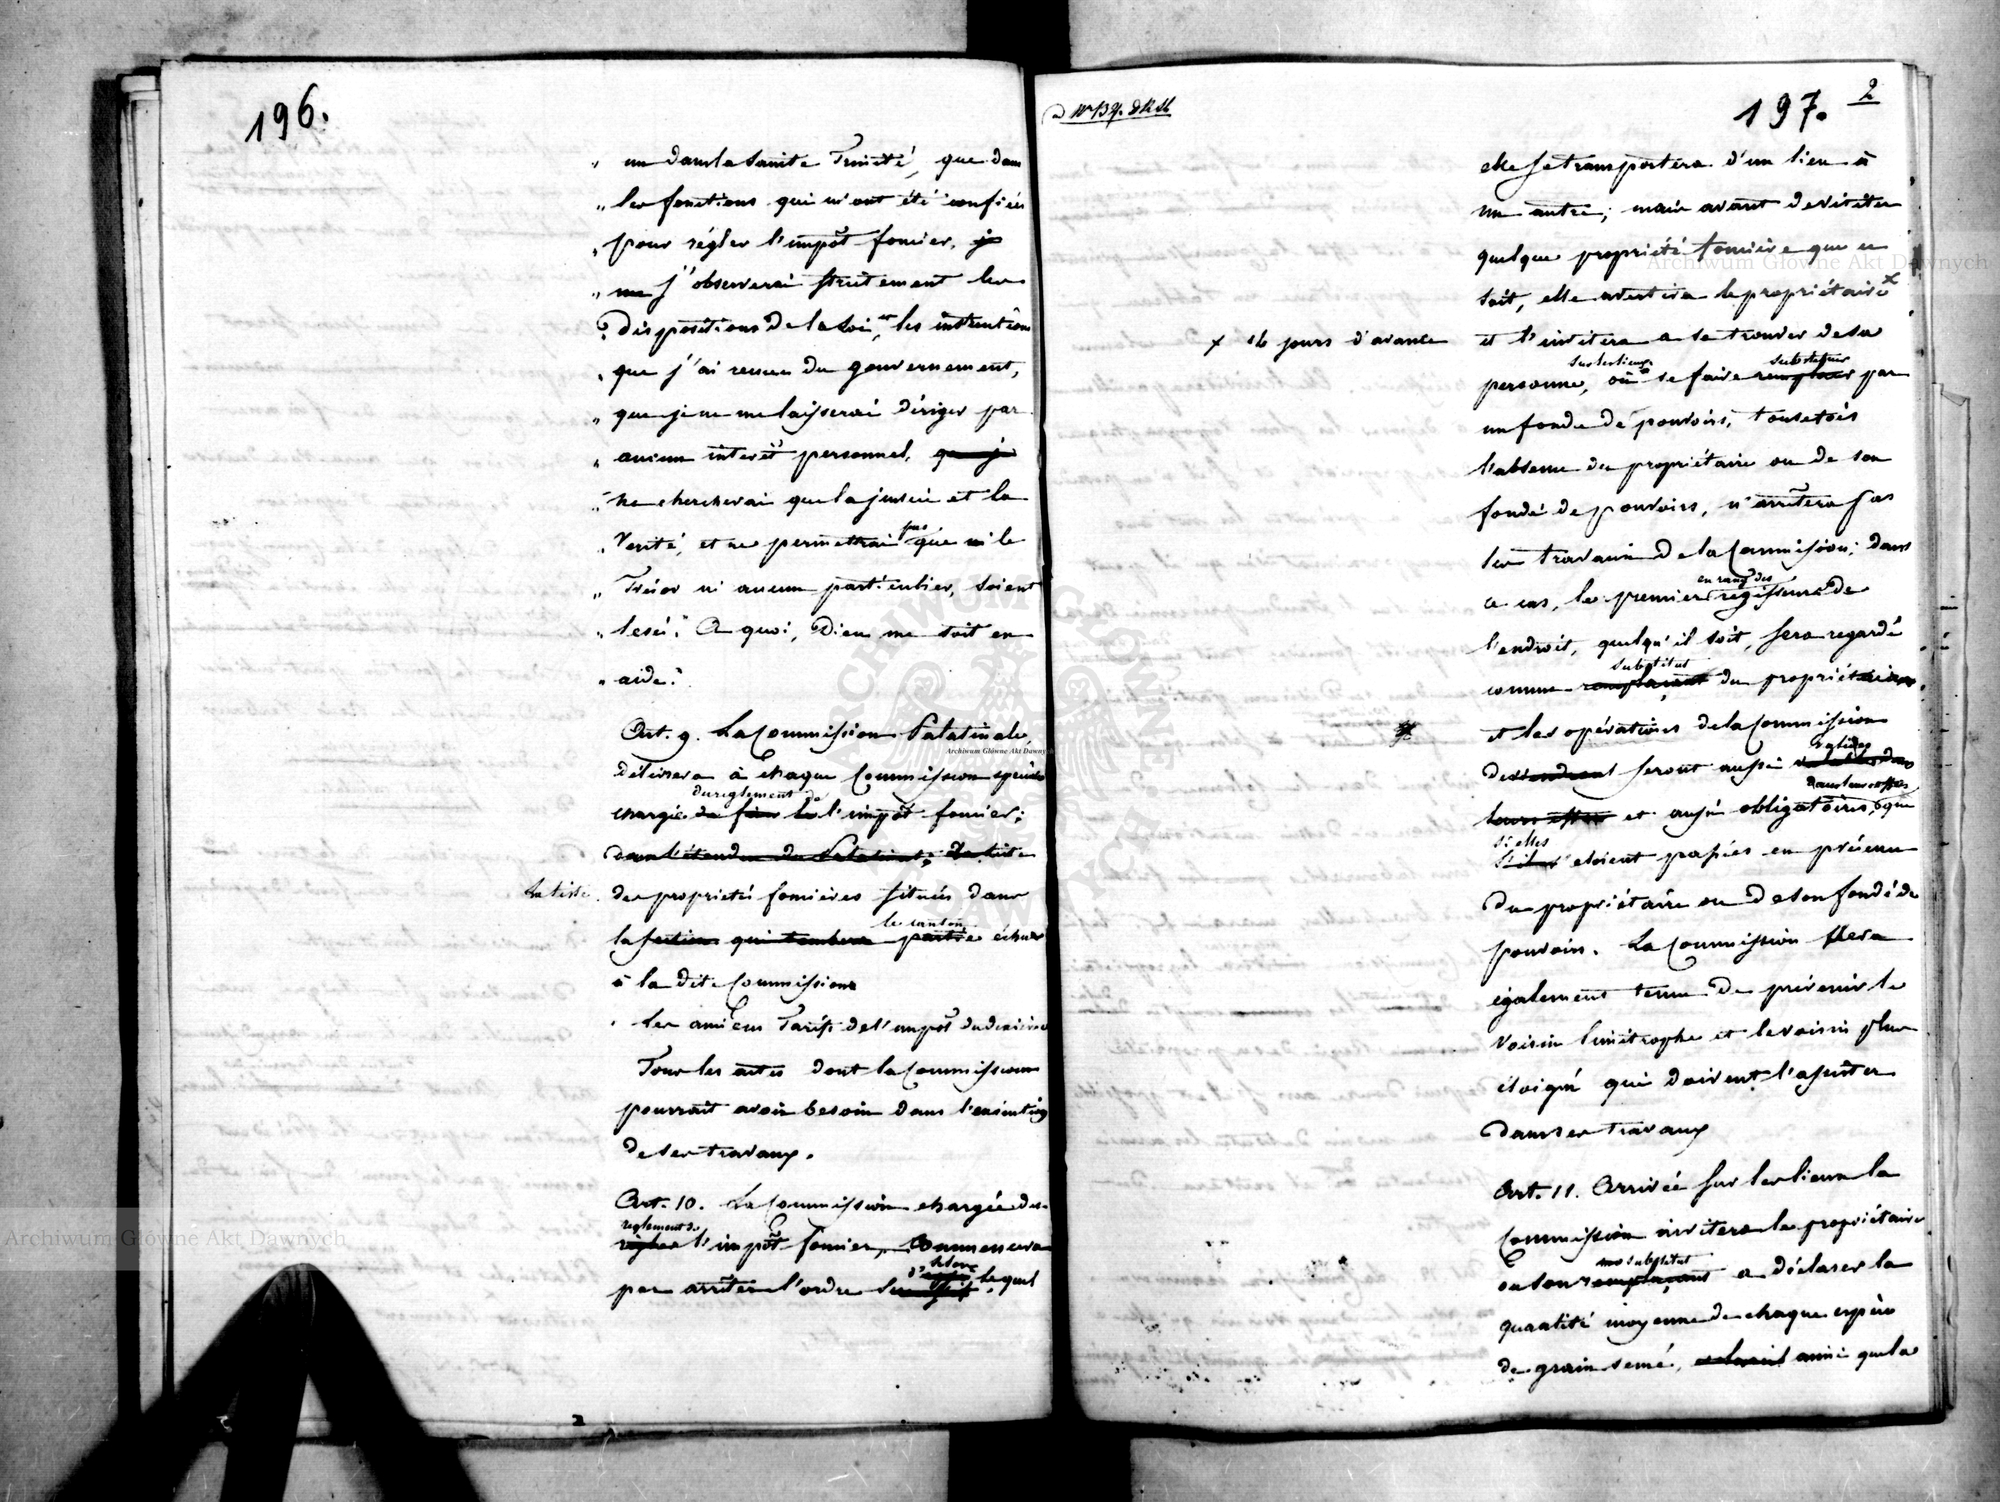 196.
" un dans la Sainte Trinité, que dans
" les fonctions qui m'ont été confiées
" pour régler l'impôt foncier, je
" ne j'observerai strictement les
" dispositions de la Loi, et les instructions
" que j'ai reçues du gouvernement,
" que je ne me laisserai diriger par
" aucun intérêt personnel, que je
" ne chercherai que la justice et la
" Verité, et ne permettrai pas que ni le
" Trésor ni aucun particulier, soient
" lesés. A quoi, Dieu me soit en
" aide."
Art. 9. La Commission Palatinale,
délivrera à chaque Commission spéciale
du reglement de
chargée de fixer l'impôt foncier;
dans l'étendue du Palatinat; la liste
La liste des proprietés foncières situées dans
le canton
la section qui tombera partie échue
à la dite Commission
Les anciens Tarifs de l'impôt du dixième
Tous les actes dont la Commission
pourrait avoir besoin dans l'exécution
de ses travaux.
Art. 10. La Commission chargée du
reglement de
régler l'impôt foncier, Commencera
par arrêter l'ordre lequel
197. 2
elle se transportera d'un lieu à
un autre; mais avant de visiter
quelque propriété foncière que ce
soit, elle avertira le propriétaire x
x 14 jours d'avance
et l'invitera a se trouver de sa
sur les lieux substituer
personne, où se faire remplacer par
un fondé de pouvoirs, toutefois
l'absence du propriétaire ou de son
fondé de pouvoirs, n'arrêtera pas
les travaux de la Commission; dans
en rang des
ce cas, le premier régisseur de
l'endroit, quelqu'il soit, sera regardé
substitut
comme remplaçant du propriétaire
et les opérations de la Commission
valides
deviendront seront aussi valables dans
dans leurs effets
leurs effets et aussi obligatoires, que
si elles
s'ils étoient passées en présence
du propriétaire ou de son fondé de
pouvoirs. La Commission sera
également tenue de prévenir le
voisin limitrophe et le voisin plus
éloigné qui doivent l'assister
dans ses travaux
Art. 11. Arrivée sur les lieux la
Commission invitera le propriétaire
substitut
ou son remplaçant a déclarer la
quantité moyenne de chaque espèce
de grain semé, ainsi que la
Archiwum Główne Akt Dawnych
Archiwum Główne Akt Dawnych
Archiwum Główne Akt Dawnych
ARCHIWUM GŁÓWNE AKT DAWNYCH